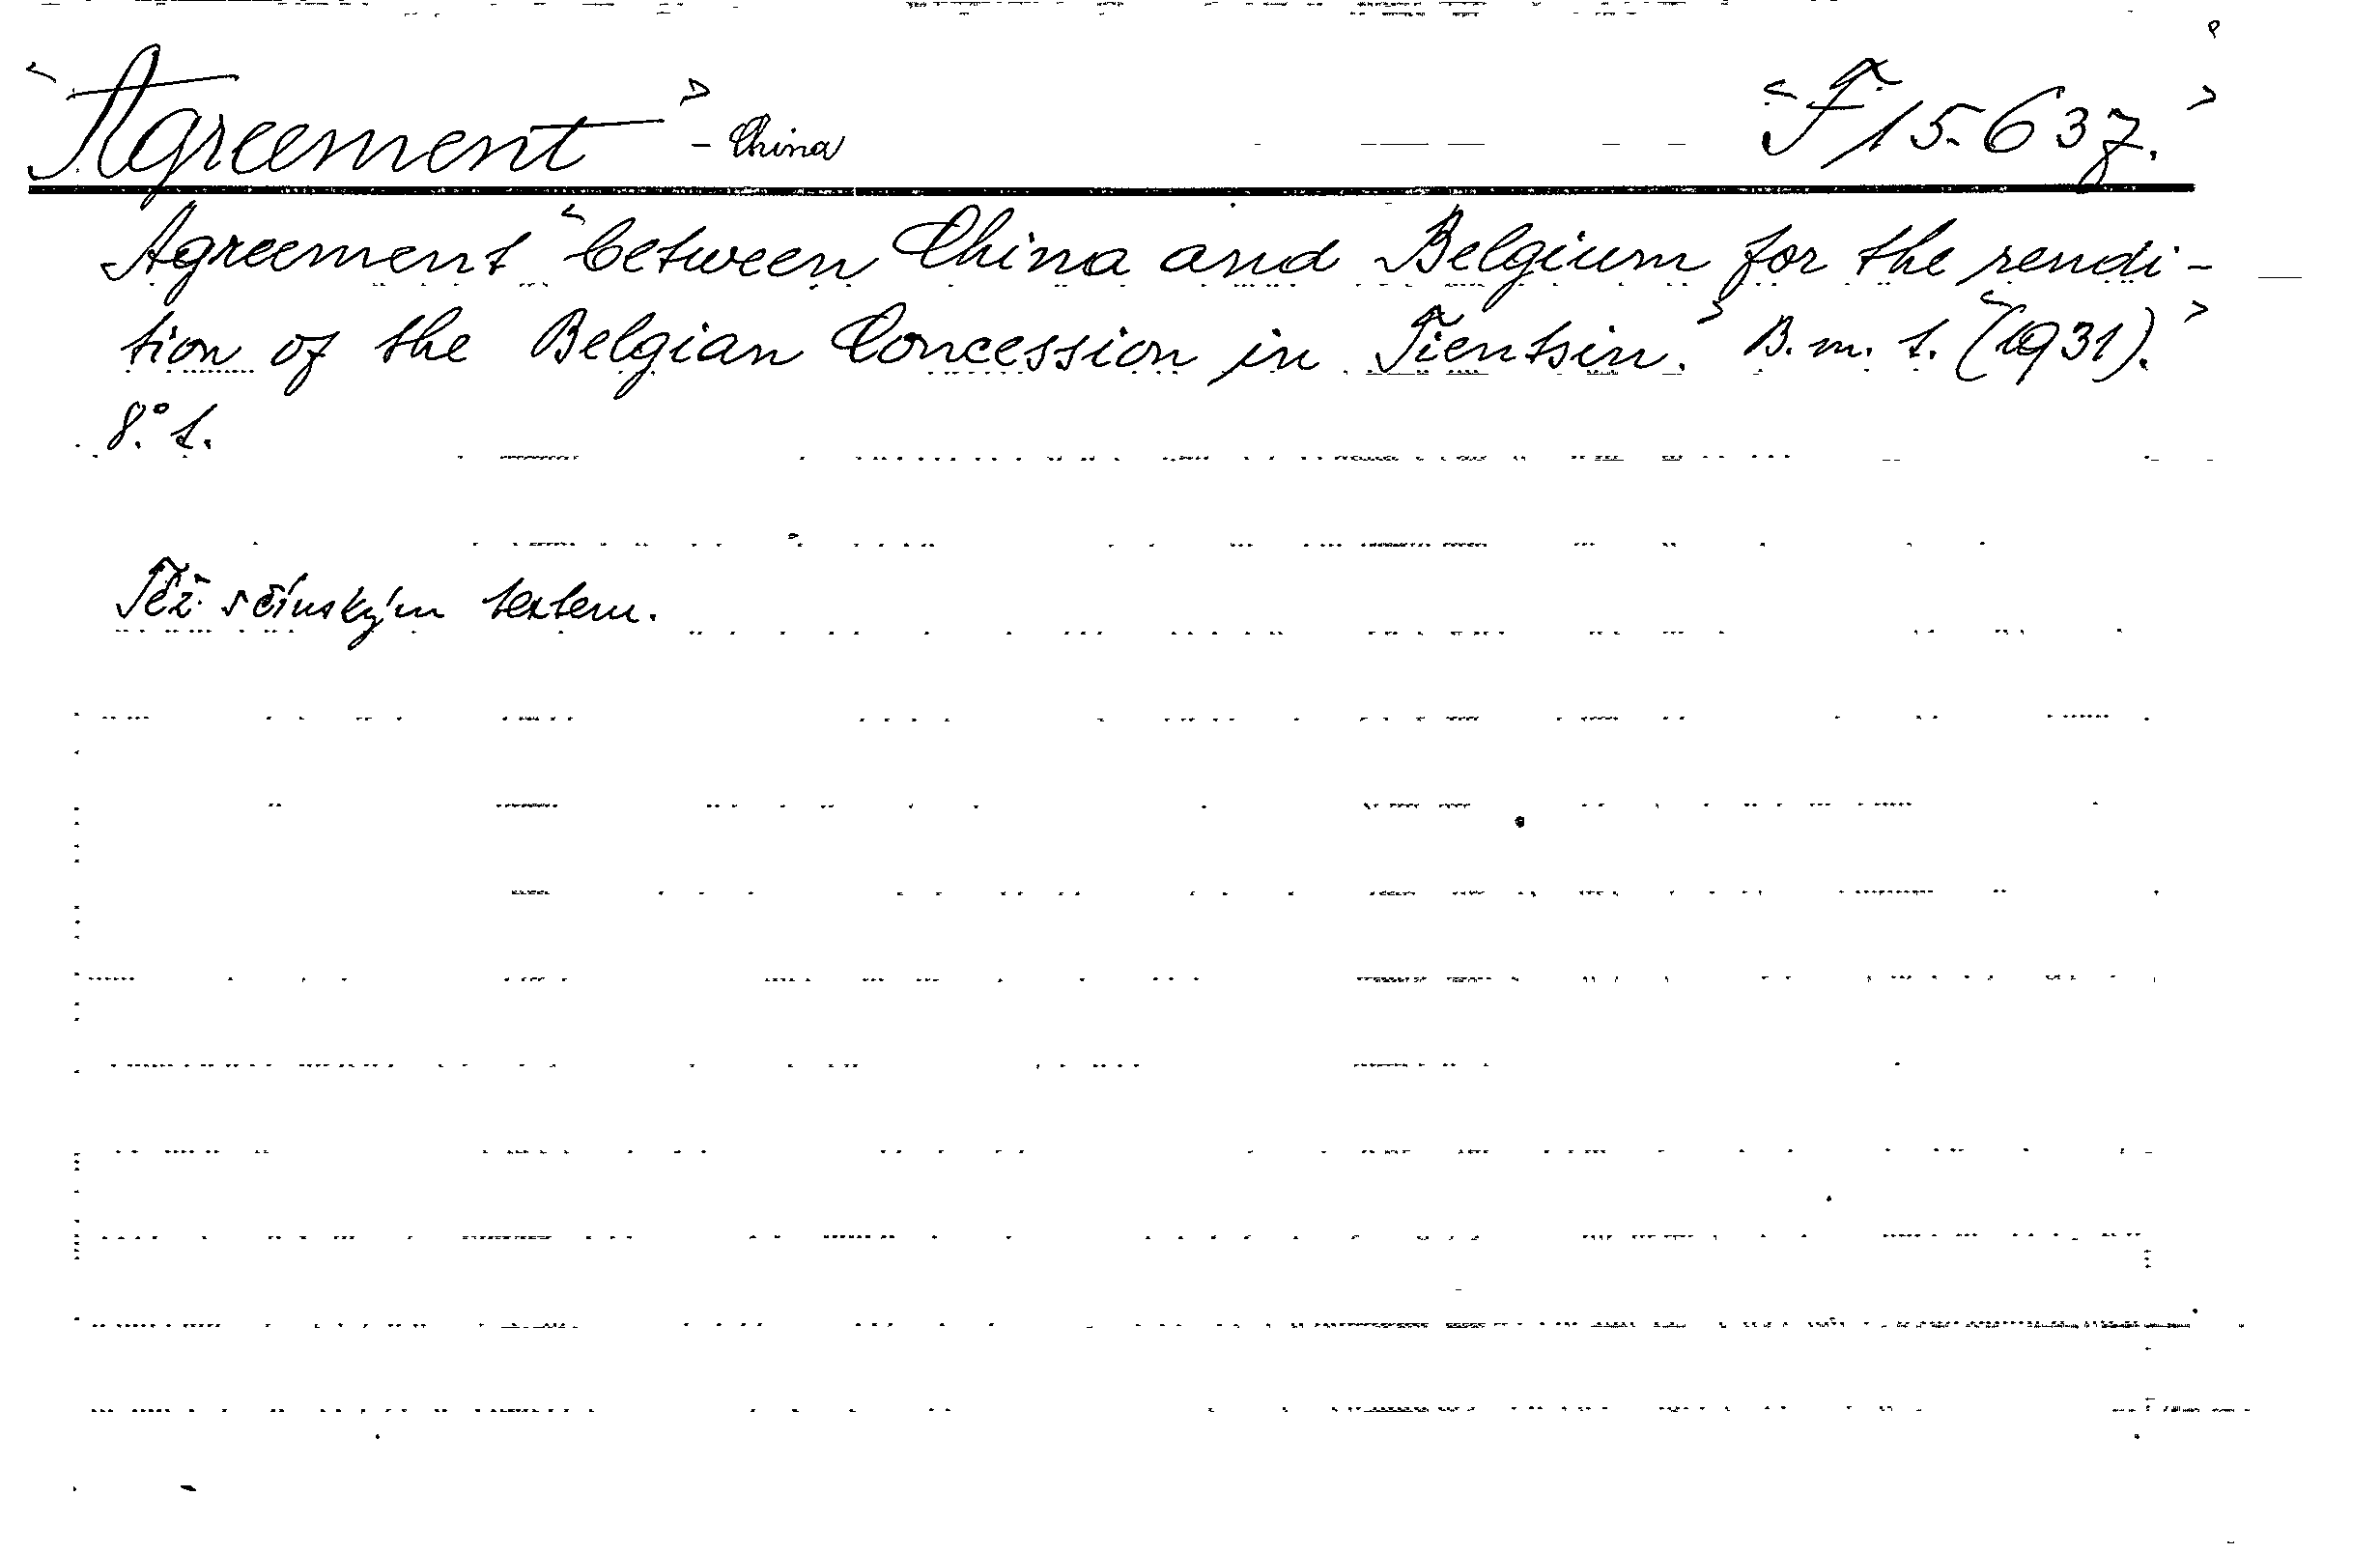 <Agreement> - China <F 15.637.>
Agreement <between China and Belgium for the rendi-
tion of the Belgian Concession in Tientsin.> B. m. t. <(1931).>
8.° t.
Též s čínským textem.